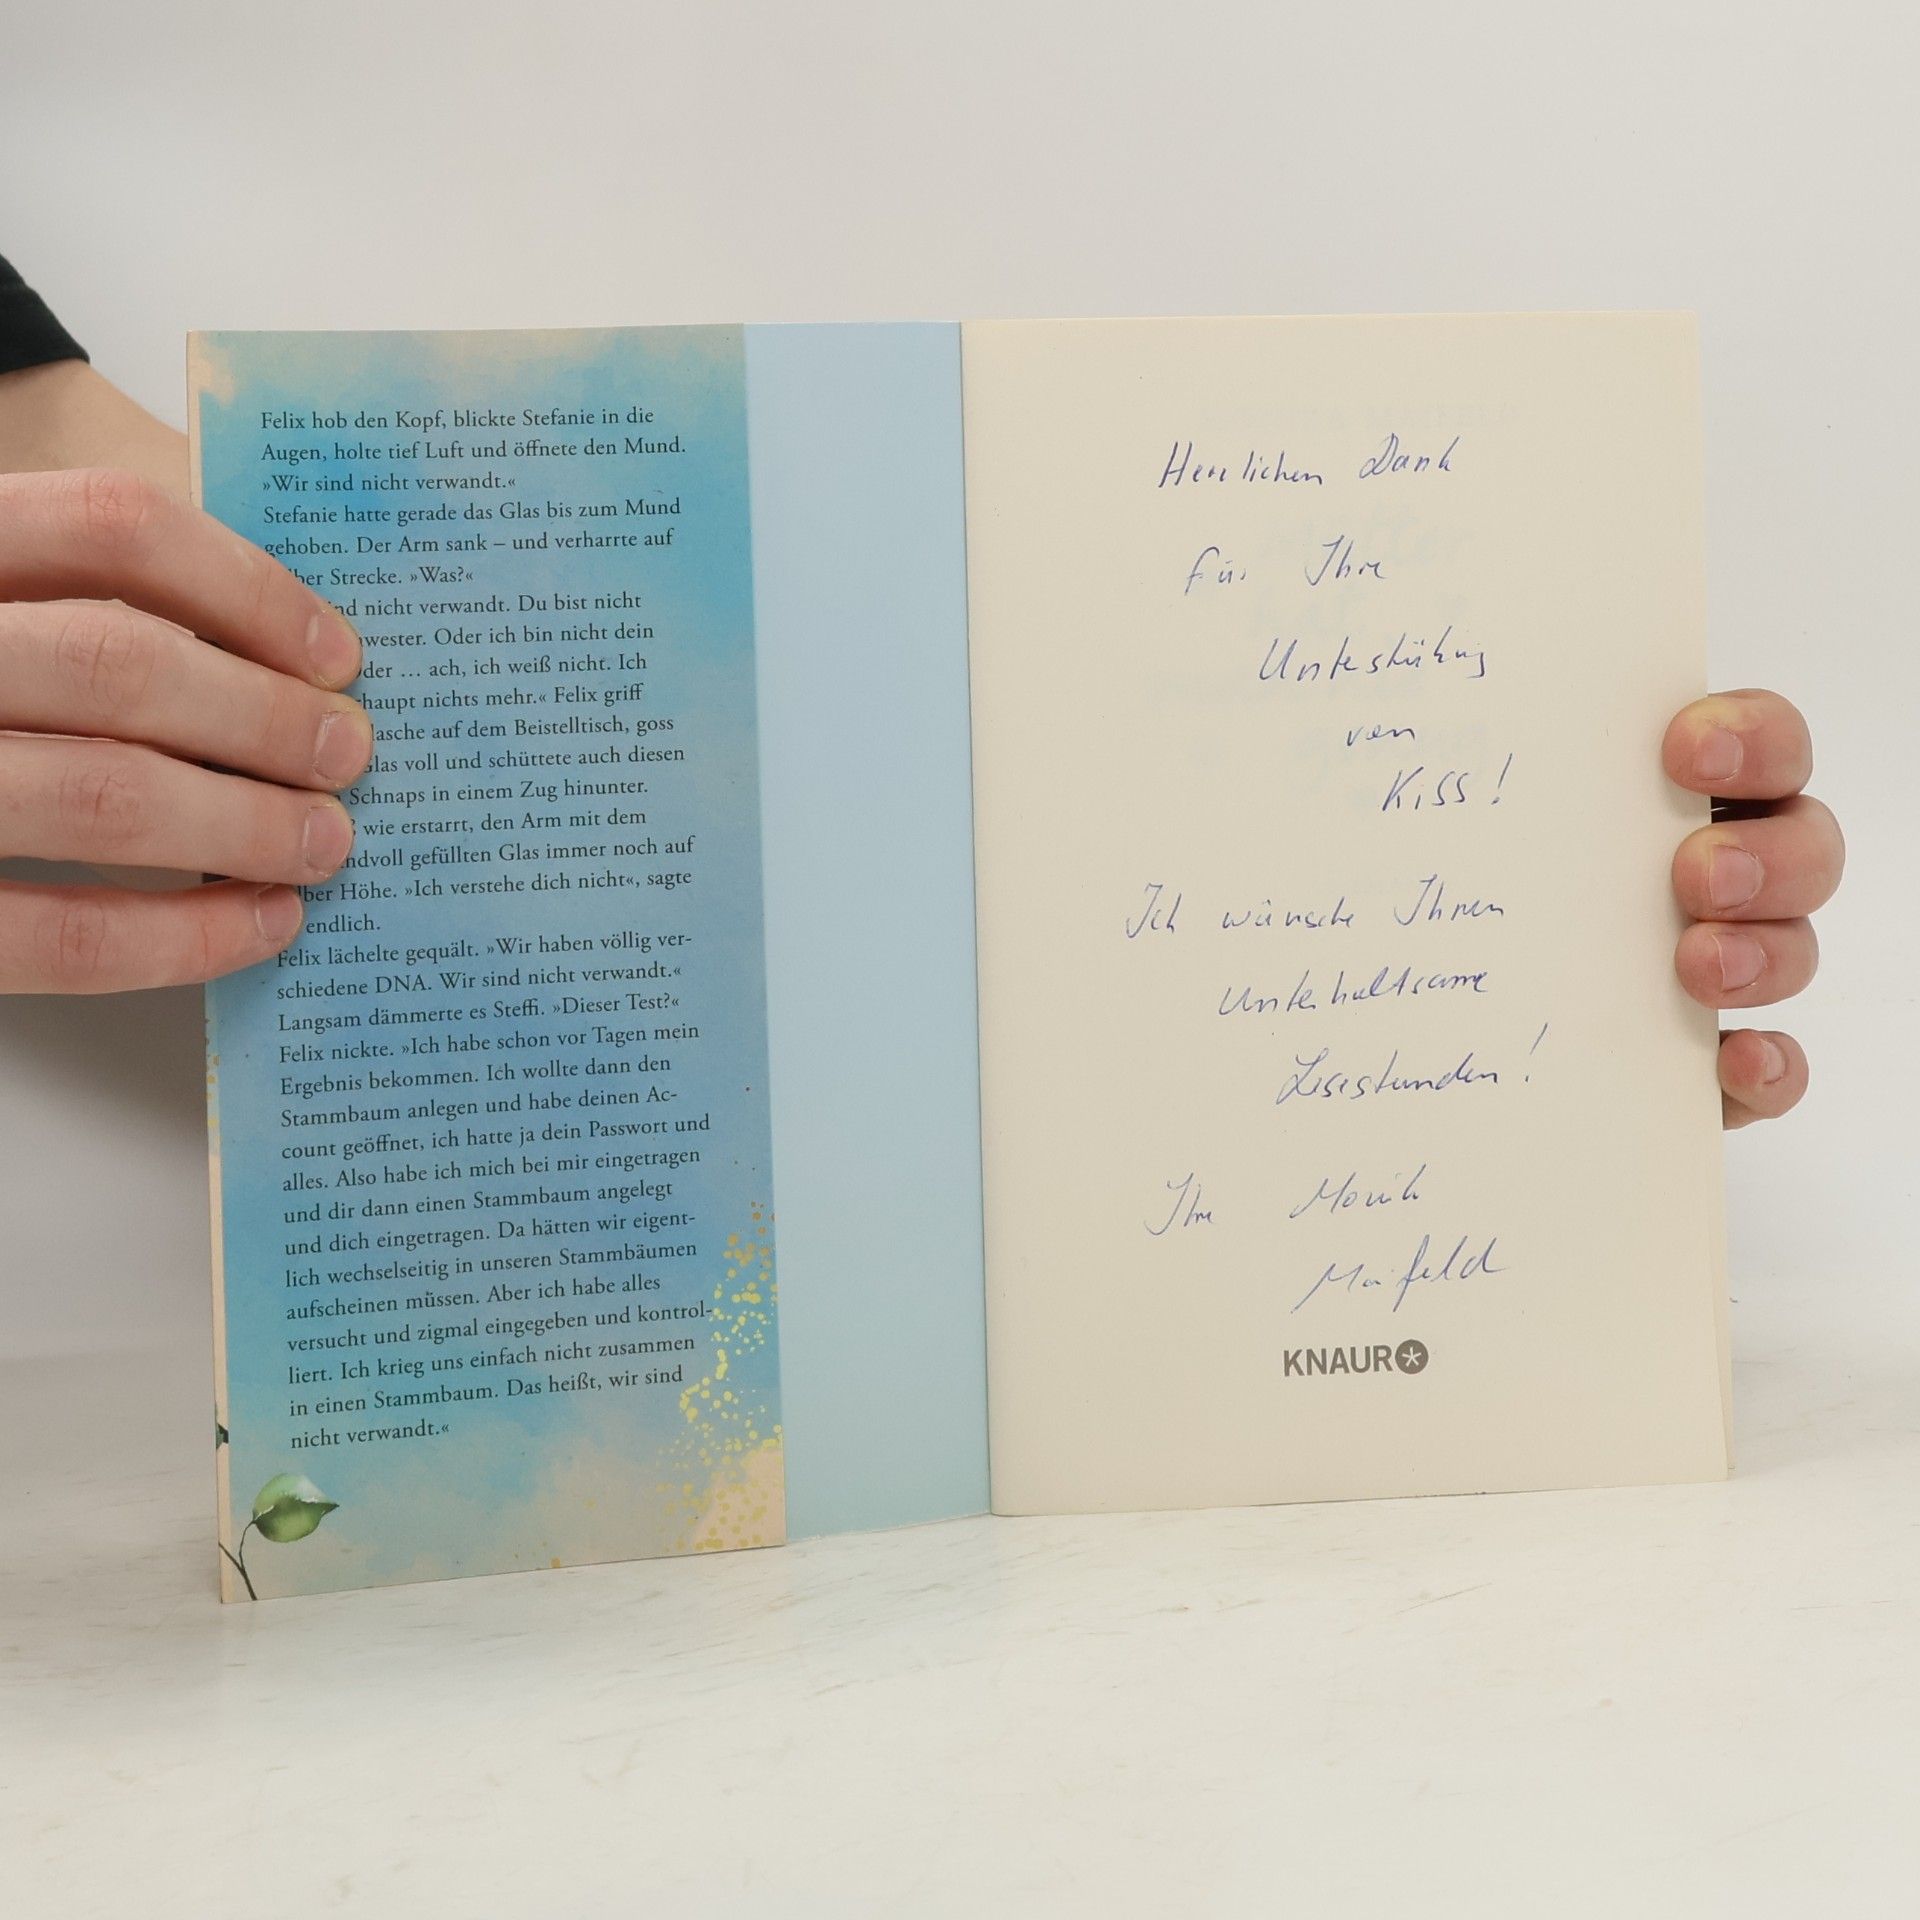 Felix hob den Kopf, blickte Stefanie in die
Augen, holte tief Luft und öffnete den Mund.
»Wir sind nicht verwandt.«
Stefanie hatte gerade das Glas bis zum Mund
gehoben. Der Arm sank – und verharrte auf
Strecke. »Was?«
nicht verwandt. Du bist nicht
Oder ich bin nicht dein
… ach, ich weiß nicht. Ich
nichts mehr.« Felix griff
auf dem Beistelltisch, goss
Glas voll und schüttete auch diesen
Schnaps in einem Zug hinunter.
wie erstarrt, den Arm mit dem
gefüllten Glas immer noch auf
Höhe. »Ich verstehe dich nicht«, sagte
endlich.
Felix lächelte gequält. »Wir haben völlig ver-
schiedene DNA. Wir sind nicht verwandt.«
Langsam dämmerte es Steffi. »Dieser Test?«
Felix nickte. »Ich habe schon vor Tagen mein
Ergebnis bekommen. Ich wollte dann den
Stammbaum anlegen und habe deinen Ac-
count geöffnet, ich hatte ja dein Passwort und
alles. Also habe ich mich bei mir eingetragen
und dir dann einen Stammbaum angelegt
und dich eingetragen. Da hätten wir eigent-
lich wechselseitig in unseren Stammbäumen
aufscheinen müssen. Aber ich habe alles
versucht und zigmal eingegeben und kontrol-
liert. Ich krieg uns einfach nicht zusammen
in einen Stammbaum. Das heißt, wir sind
nicht verwandt.«
Herzlichen Dank
für Ihre
Unterstützung
von
KiSS!
Ich wünsche Ihnen
Unterhaltsame
Lesestunden!
Ihre Monika
Maifeld
KNAUR